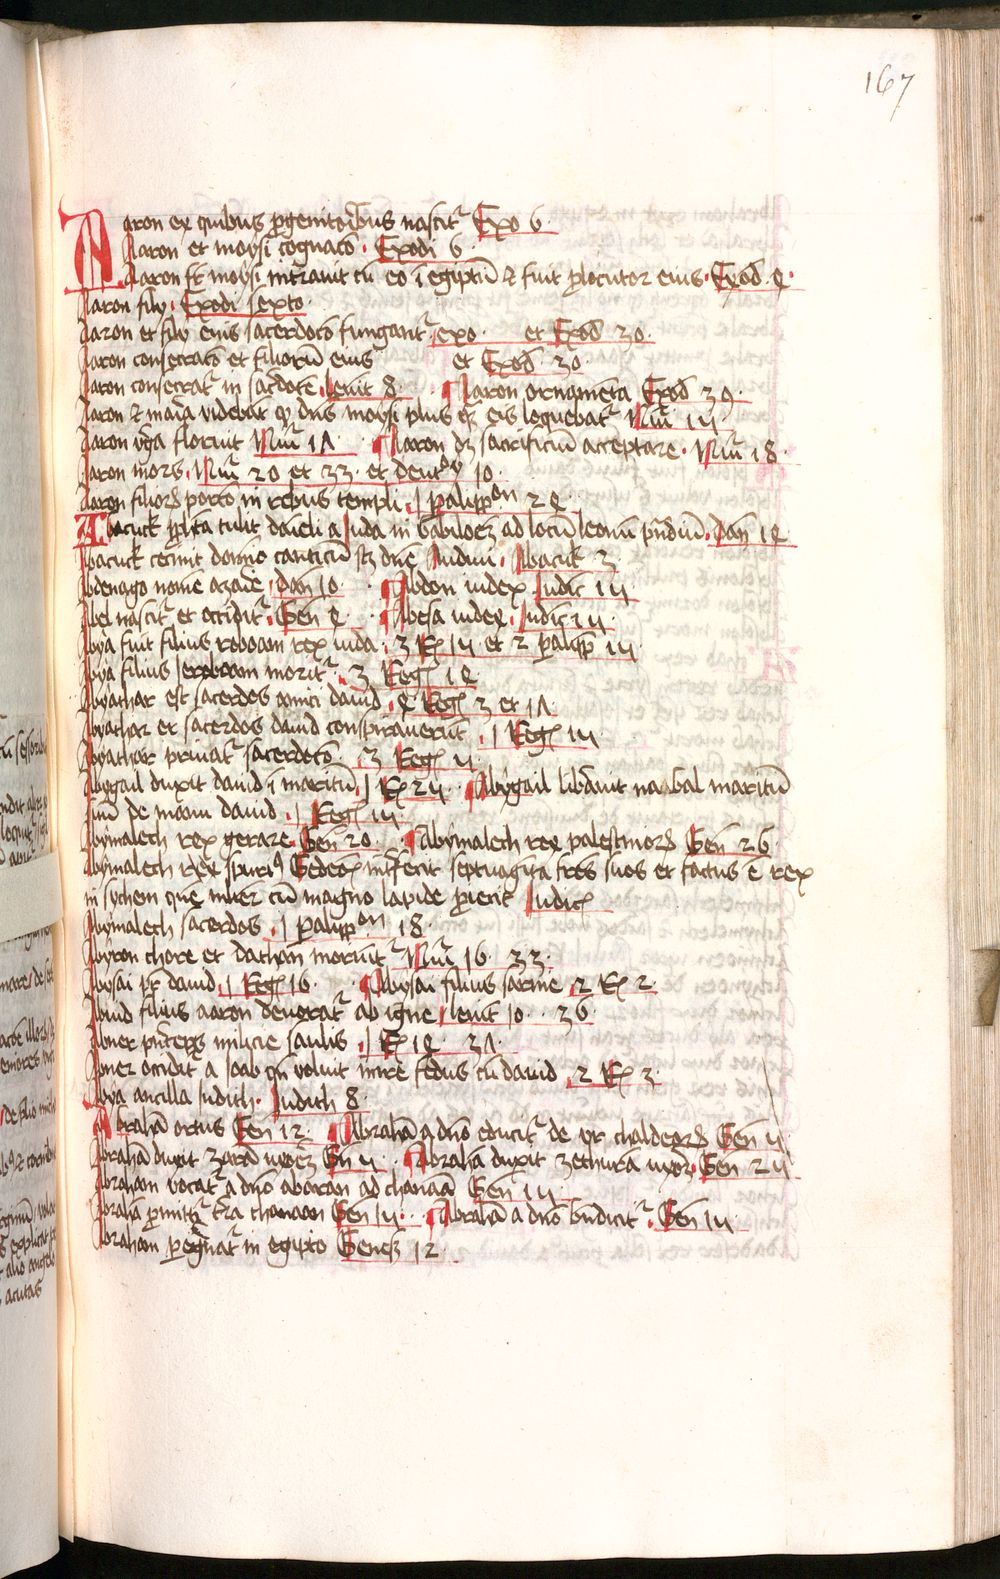 167
Aaron ex quibus progenitoribus nascit̉ Exo 6
Aaron et moysi cognatō. Exodi 6
Aaron fr̄ moysi intravit cū eo ī egiptū & fuit p̄locutor eius. Exod̄ 4.
Aaron filij. Exodi sexto.
Aaron et filij eius sacerdotō fungant̉ exo. et Exod̄ 30.
Aaron consecratō et filiorū eius et Exod̄ 30
Aaron consecrat̉ in sacerdotē. levit 8. Aaron ornamēta Exod̄ 39.
Aaron & maria videbāt q̧ dn̄s moysi plus q̧ eis loquebat̉ Nūi 12
Aaron v̄ga floruit Nūi 17 Aaron dz sacrificiū acceptare. Nūi 18.
Aaron mors. Nūi 20 et 33. et deutoͬ 10.
Aaron filiorꝫ porcō in rebus templi. 1 palippoⁿ 24
Abacuck ꝓph̄ta tulit danieli a Juda in babiloēz ad locū leonū prādiū. Dan 14
Abacuck cecinit domino canticū sꝫ dn̄e Audivi. Abacuk 3
Abdenago nomē azarie. Dan 10. Abdon iudex Judic̄ 12
Abel nascit̉ et occidit̉. Gen̄ 4. Abesa iudex. Judic 12.
Abya fuit filius roboam rex iuda. 3 Rꝫ 14 et 2 palipp̄ 12
Abya filius Jeroboam morit̉. 3 Regꝫ 14
Abyathar est sacerdos amici david. 4 Regꝫ 3 et 17
Abyathar et sacerdos david conspiraverūt. 1 Regꝫ 12
Abyathar privat̉ sacerdotō. 3 Regꝫ 2
Abygail duxit david ī maritū 1 Rꝫ 25. Abygail lib̄avit naabal maritū
suū de manu david. 1 Regꝫ 12
Abymalech rex gerare. Gen̄ 20. Abymalech rex palestinorꝫ Gen̄ 26.
Abymalech rex spuri⁹ Gedeoꝫ intfecit septuagīta fr̄es suos et factus ē rex
in sychem quē mulier cū magno lapide ꝑemit Judicꝫ
Abymalech sacerdos. 1 palippoⁿ 18.
Abyron chore et dathan moriūt̉ Nūi 16. 33.
Abysai fr̄ david. 1 Regꝫ 16. Abysai filius sarvie. 2 Rꝫ 2.
Abiud filius aaron devorat̉ ab igne levit 10. 36.
Abner p̄nceps milicie saulis. 1 Rꝫ 14. 37.
Abner occidit̉ a Joab qn̄ voluit inire fedus cū david. 2 Rꝫ 3.
Abya ancilla Judith. Judith 8.
Abrahā ortus Gen̄ 12. Abrahā a dn̄o educit̉ de vr chaldeorꝫ Gen̄ 11
Abrahā duxit zarā uxoēz Gn̄ 11. Abrahā duxit zethurā uxoꝫ Gen 25
Abraham vocat̉ a dn̄o abaran ad chanaā Gen̄ 12
Abrahā ꝓmittit̉ t̄ra chanaan Gen̄ 12. Abrahā a dn̄o bn̄dicit̉. Gen̄ 12.
Abraham ꝑegrīat̉ in egipto Genesꝫ 12.